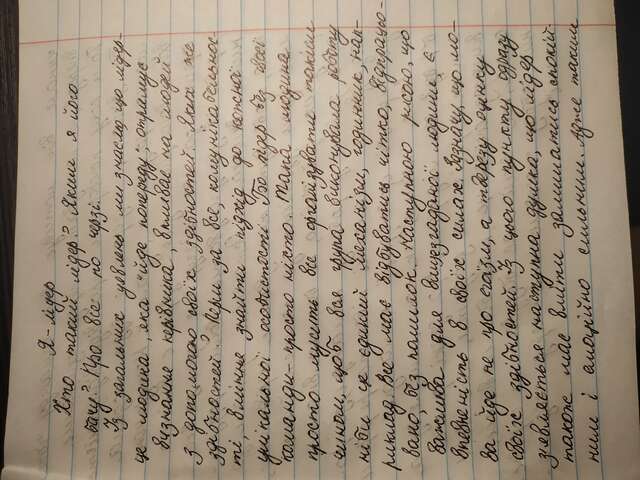 Я-лідер
Хто такий лідер? Яким я його
бачу? Про все по черзі.
Із загальних уявлень ми знаємо, що лідер-
це людина, яка "йде попереду", отримує
визнання керівника, впливає на людей
з допомогою своїх здібностей. Яких же
здібностей? Перш за все, комунікабельнос-
ті, вміння знайти підхід до кожної
унікальної особистості. Бо лідер без своєї
команди - просто ніхто. Така людина
просто мусить все організувати таким
чином, щоб вся група виконувала роботу
ніби це єдиний механізм, годинник, нап-
риклад. Все має відбуватись чітко, відпрацьо-
вано, без помилок. Наступною рисою, що
важлива для вищезгаданої людини, є
впевненість в своїх силах. Зазначу, що мо-
ва йде не про егоїзм, а тверезу оцінку
своїх здібностей. Із цього пункту одразу
з'являється наступна думка, що лідер
також має вміти залишатись спокій-
ним і емоційно сильним. Адже таким